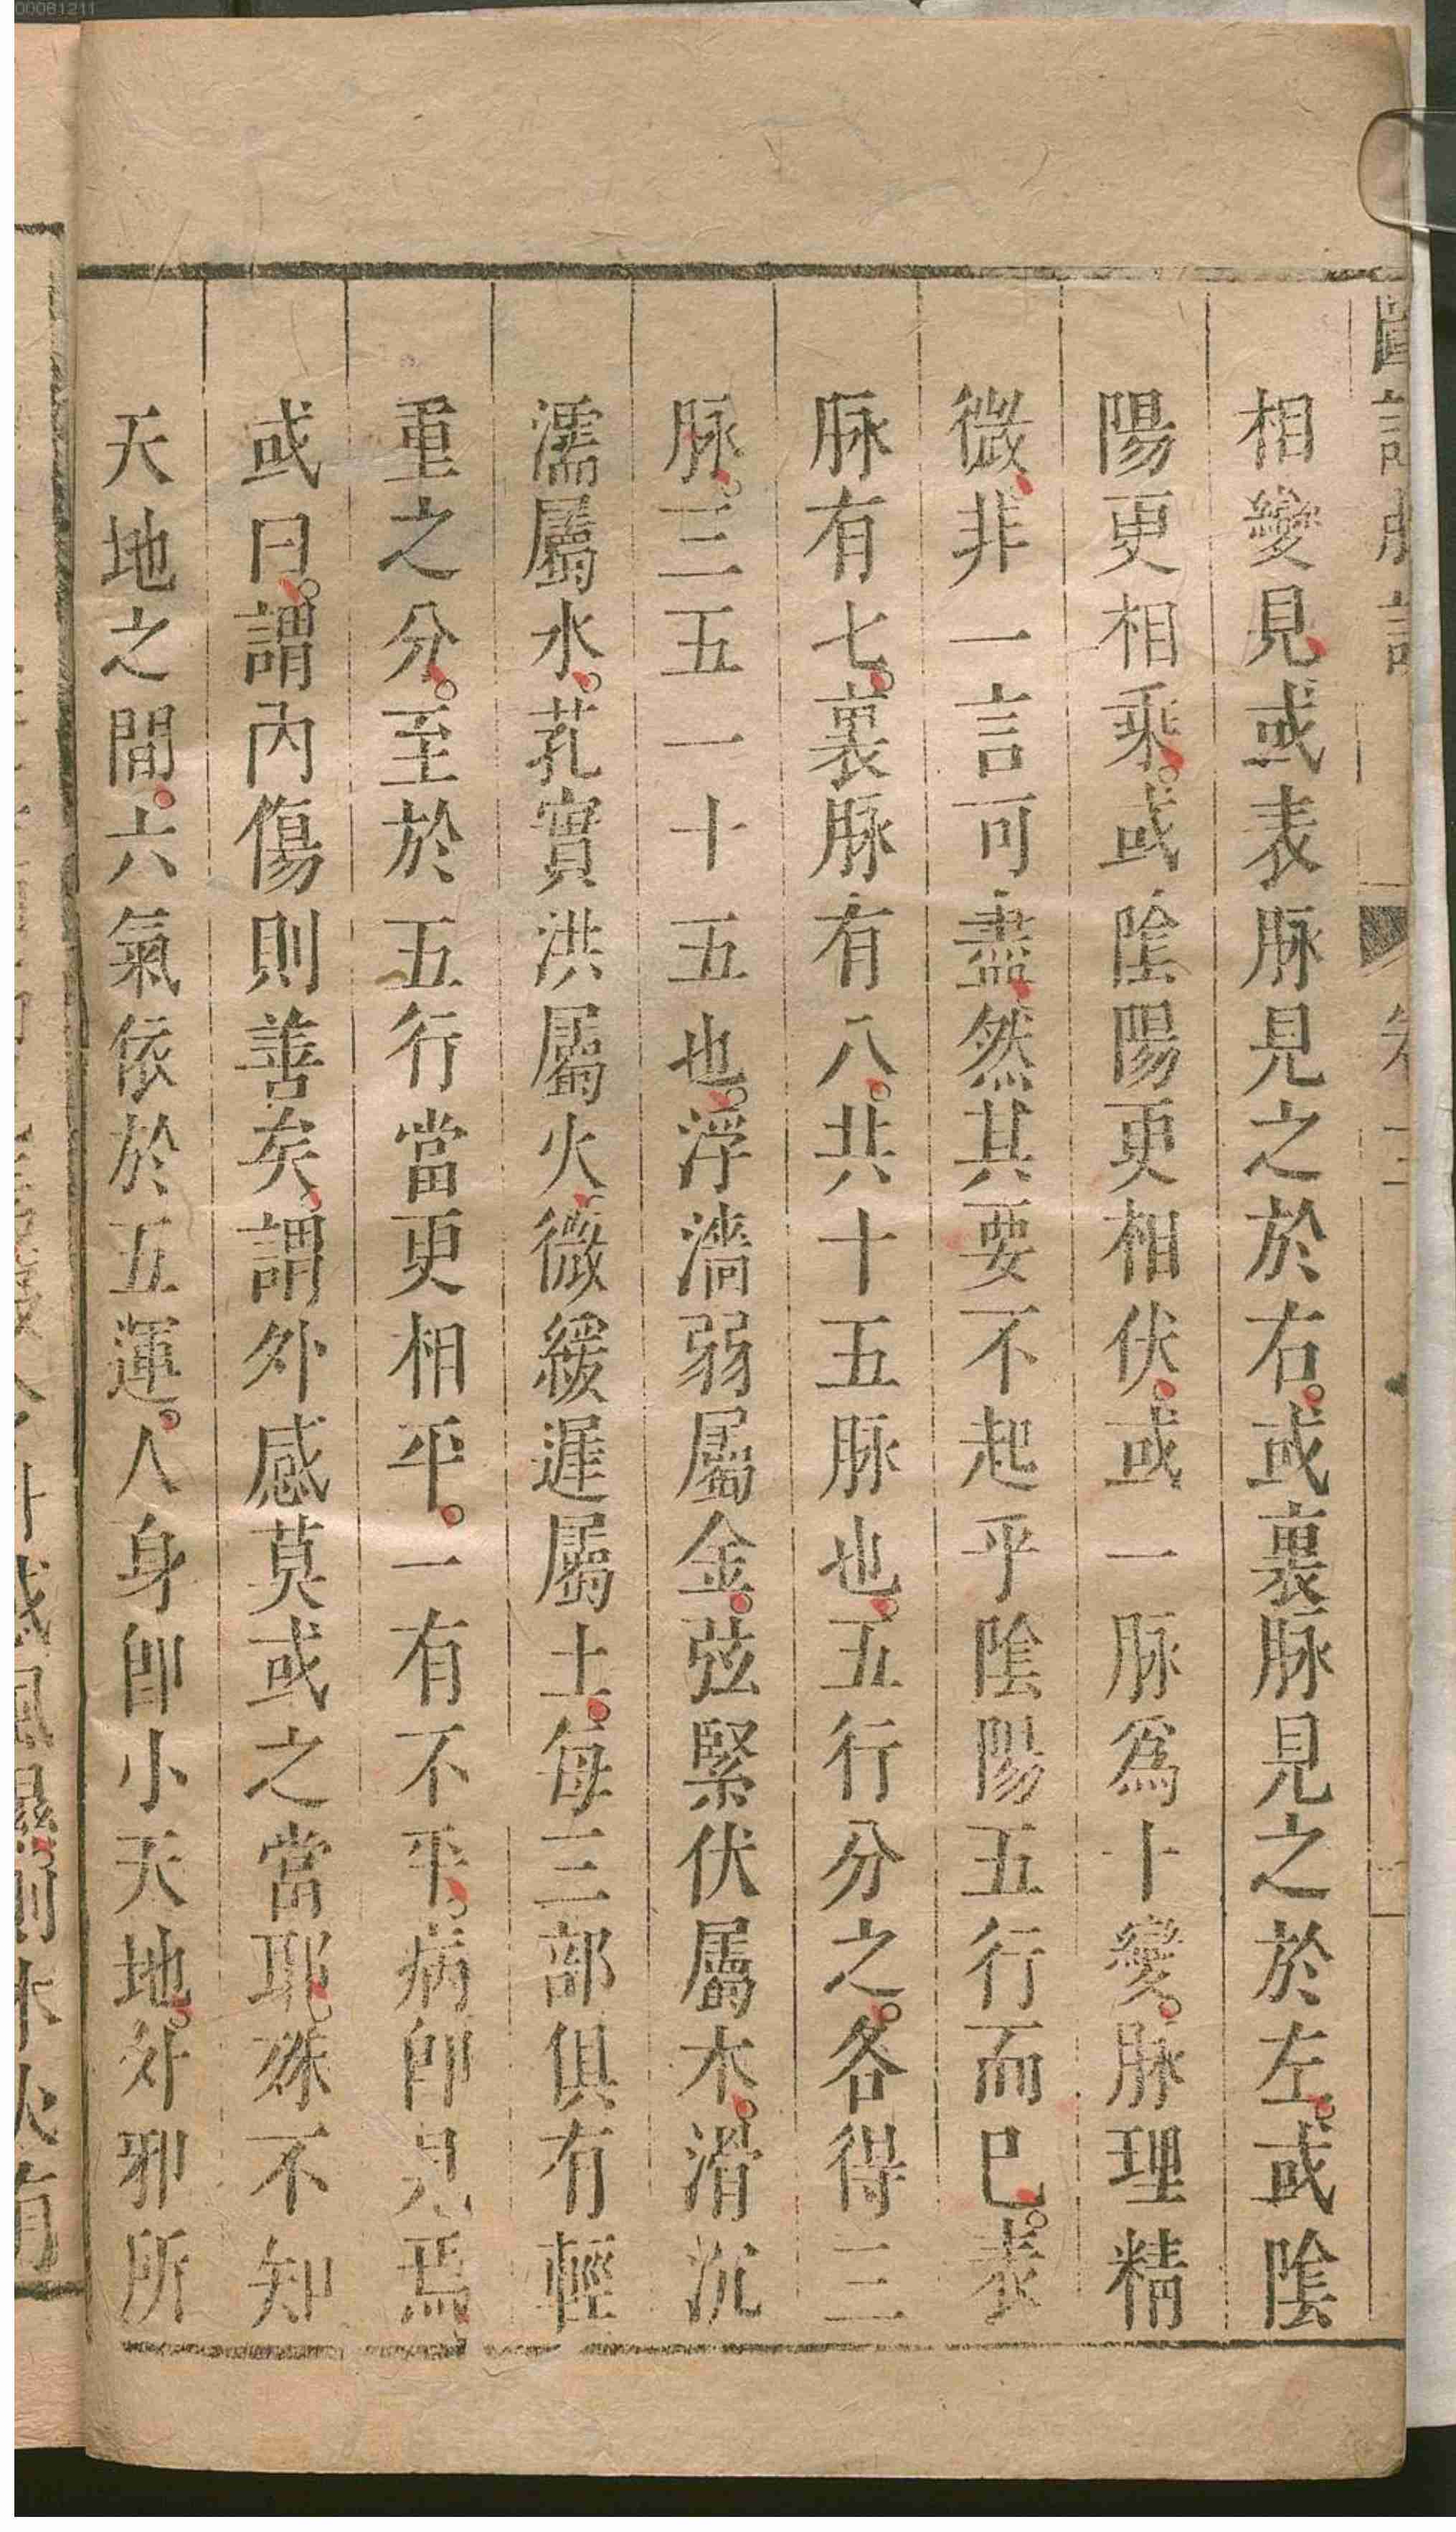 00081211
相變見或表脉見之於右。或裏脉見之於左。或隂
陽更相乘。或隂陽更相伏。或一脉爲十變。脉理精
微、非一言可盡、然其要不起乎隂陽五行而已。表
脉有七。裏脉有八。共十五脉也。五行分之。各得三
脉。三五一十五也。浮濇弱屬金。弦緊伏屬木。滑沉
濡屬水。芤實洪屬火、微緩遲屬土。每三部俱有輕
重之分。至於五行當更相平。一有不平。病卽見焉、
或曰。謂內傷則善矣、謂外感莫或之當耶。殊不知
天地之間。六氣依於五運。人身卽小天地。外邪所